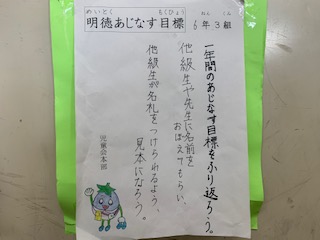 めいとく もくひょう
明徳あじなす目標
ねん くみ
6年3組
一年間のあじなす目標をふり返ろう。
他級生や先生に名前を
おぼえてもらい、
他級生が名札をつけられるよう、
見本になろう。
児童会本部